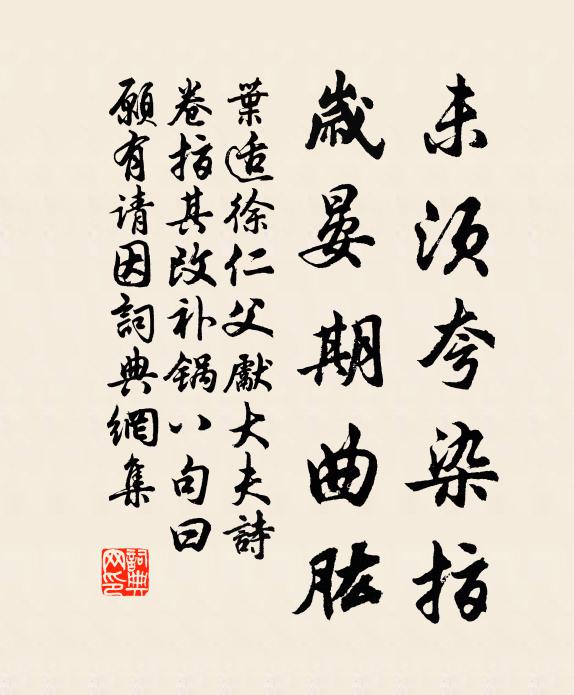 未須夸染指
歲晏期曲肱
葉适徐仁父獻大夫詩
卷指其改补锅八句曰
願有请因詞典網集
詞典网印